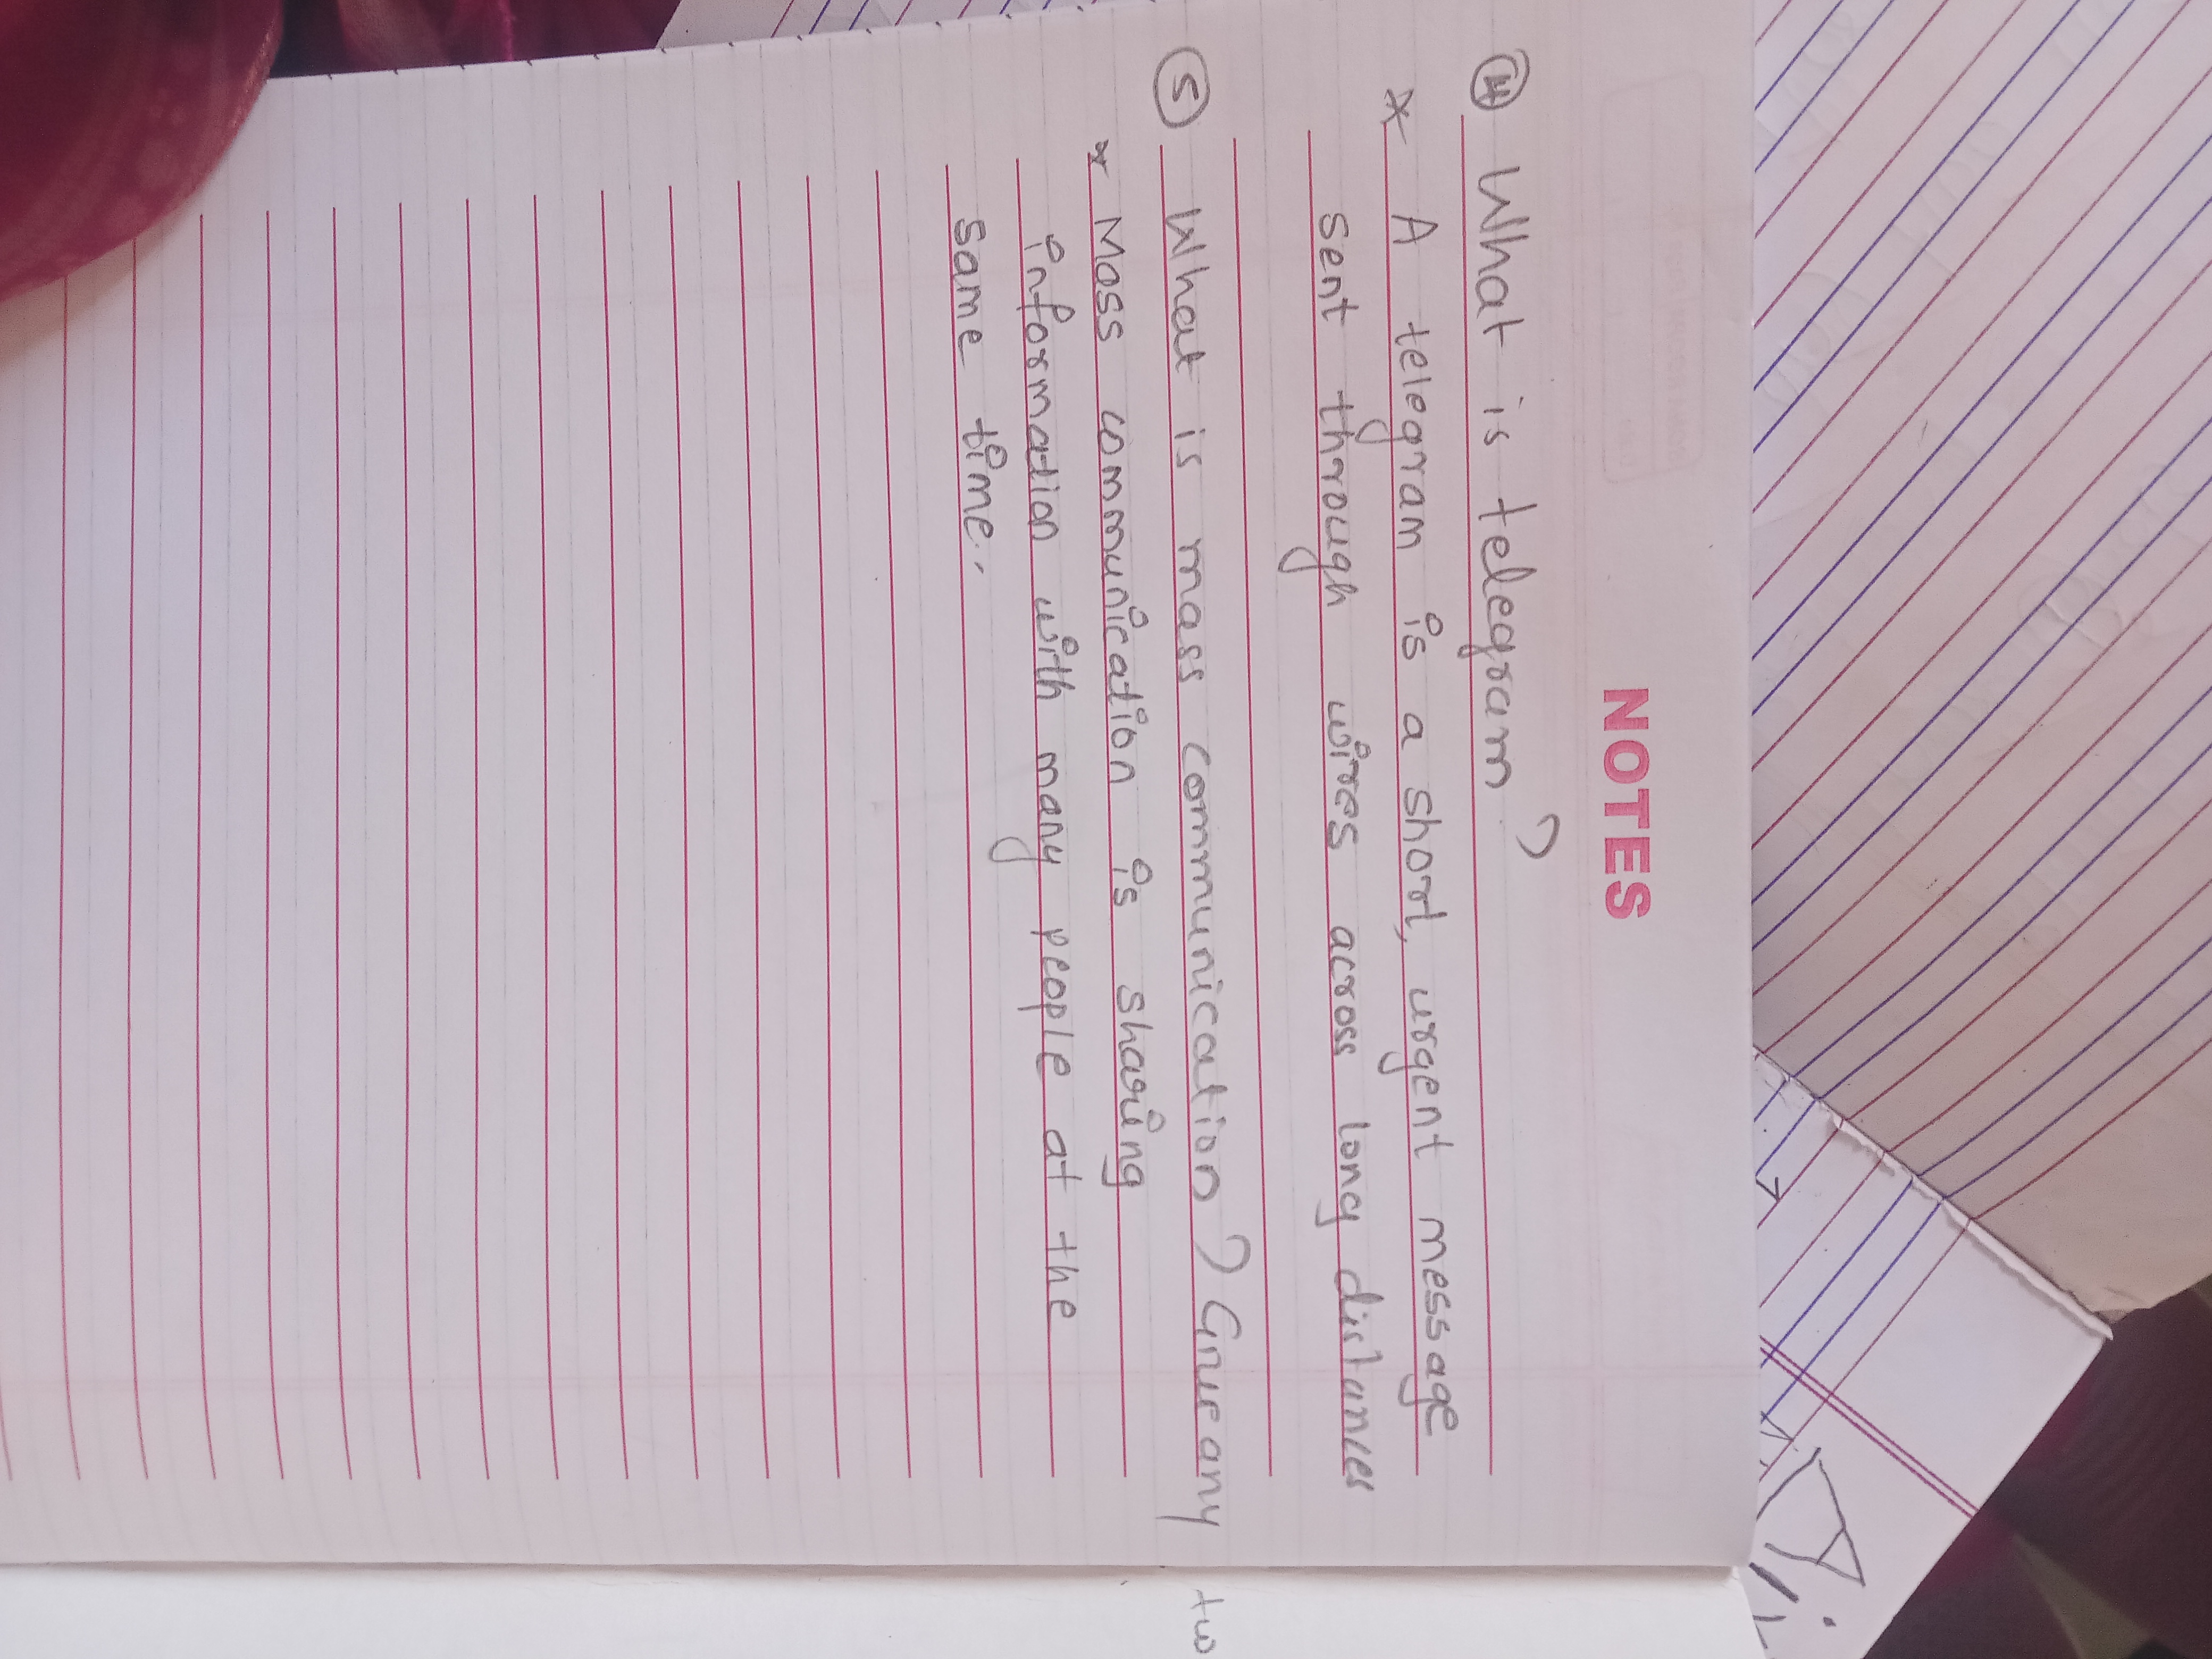 NOTES
④ What is telegram?
* A telegram is a short, urgent message
sent through wires across long distances
⑤ What is mass communication? Give any two
* Mass communication is sharing
information with many people at the
same time..